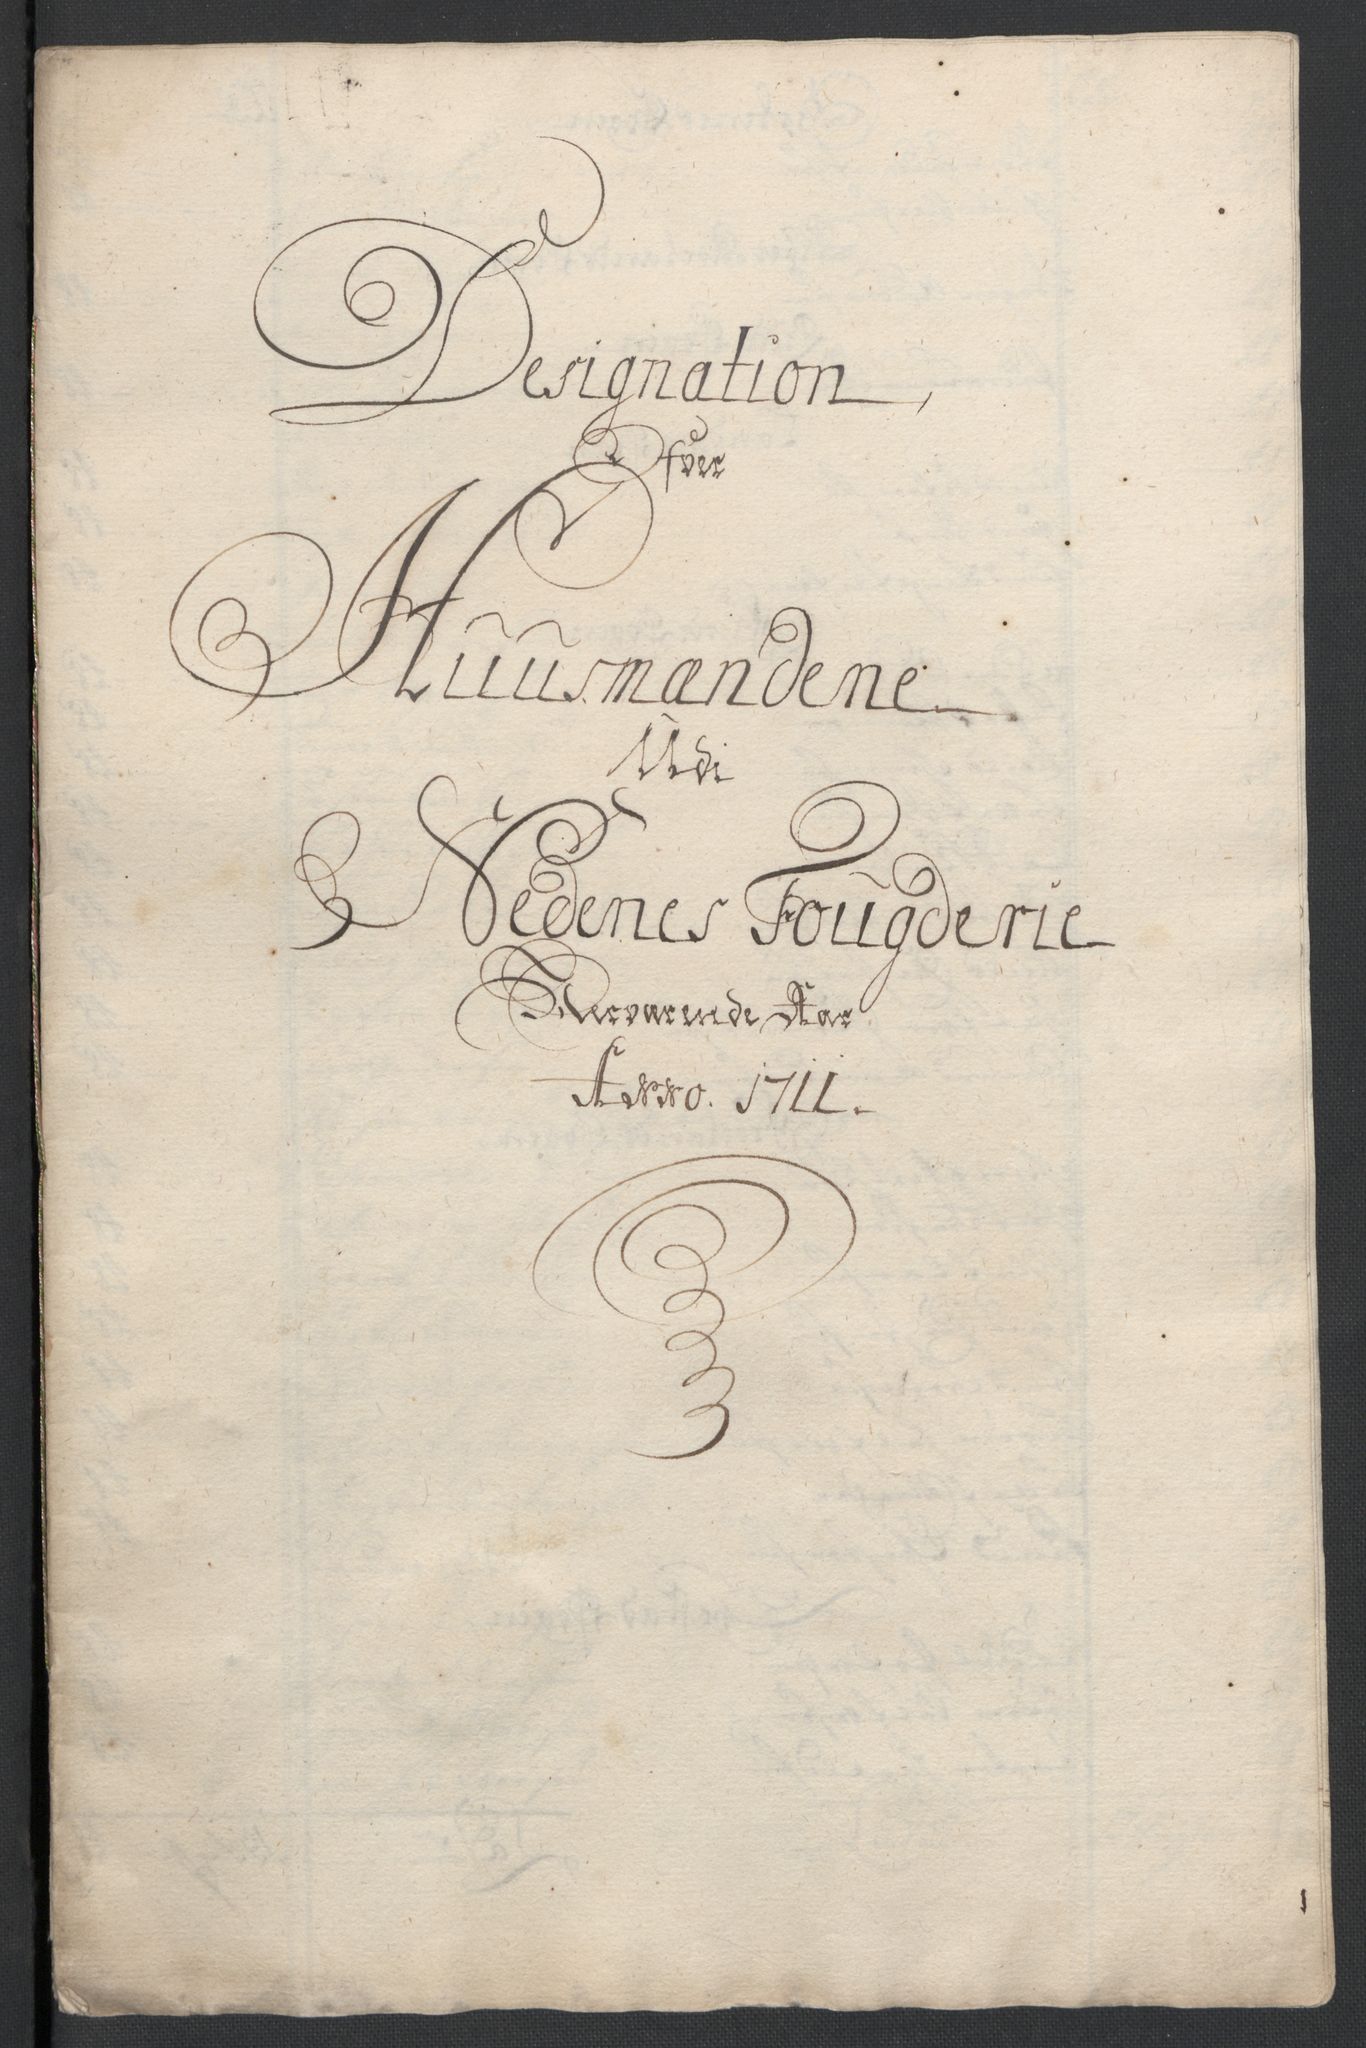 Designation,
Ofver
Huusmændene
Udi
Nedenes Fougderie
Nerværende Aar
Anno. 1711.
1